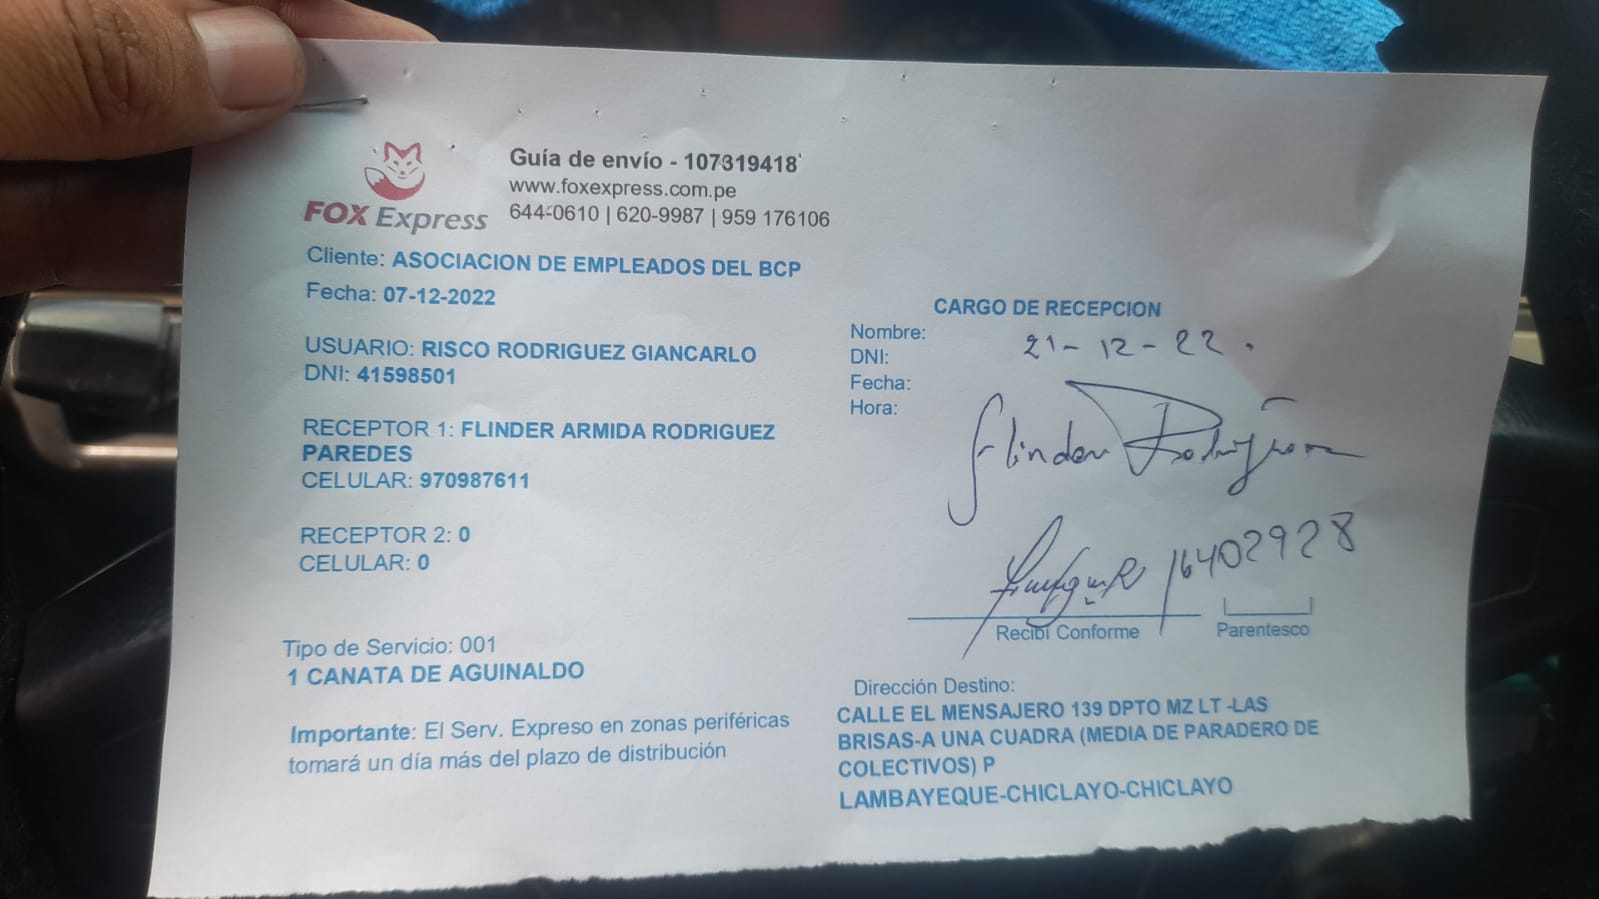 FOX Express
Guía de envío - 107319418
www.foxexpress.com.pe
644-0610 | 620-9987 | 959 176106
Cliente: ASOCIACION DE EMPLEADOS DEL BCP
Fecha: 07-12-2022
USUARIO: RISCO RODRIGUEZ GIANCARLO
DNI: 41598501
RECEPTOR 1: FLINDER ARMIDA RODRIGUEZ
PAREDES
CELULAR: 970987611
RECEPTOR 2: 0
CELULAR: 0
Tipo de Servicio: 001
1 CANATA DE AGUINALDO
Importante: El Serv. Expreso en zonas periféricas
tomará un día más del plazo de distribución
CARGO DE RECEPCION
Nombre:
DNI:
Fecha:
Hora:
21-12-22.
Flinder Rodríguez
16402928
Recibí Conforme
Parentesco
Dirección Destino:
CALLE EL MENSAJERO 139 DPTO MZ LT -LAS
BRISAS-A UNA CUADRA (MEDIA DE PARADERO DE
COLECTIVOS) P
LAMBAYEQUE-CHICLAYO-CHICLAYO